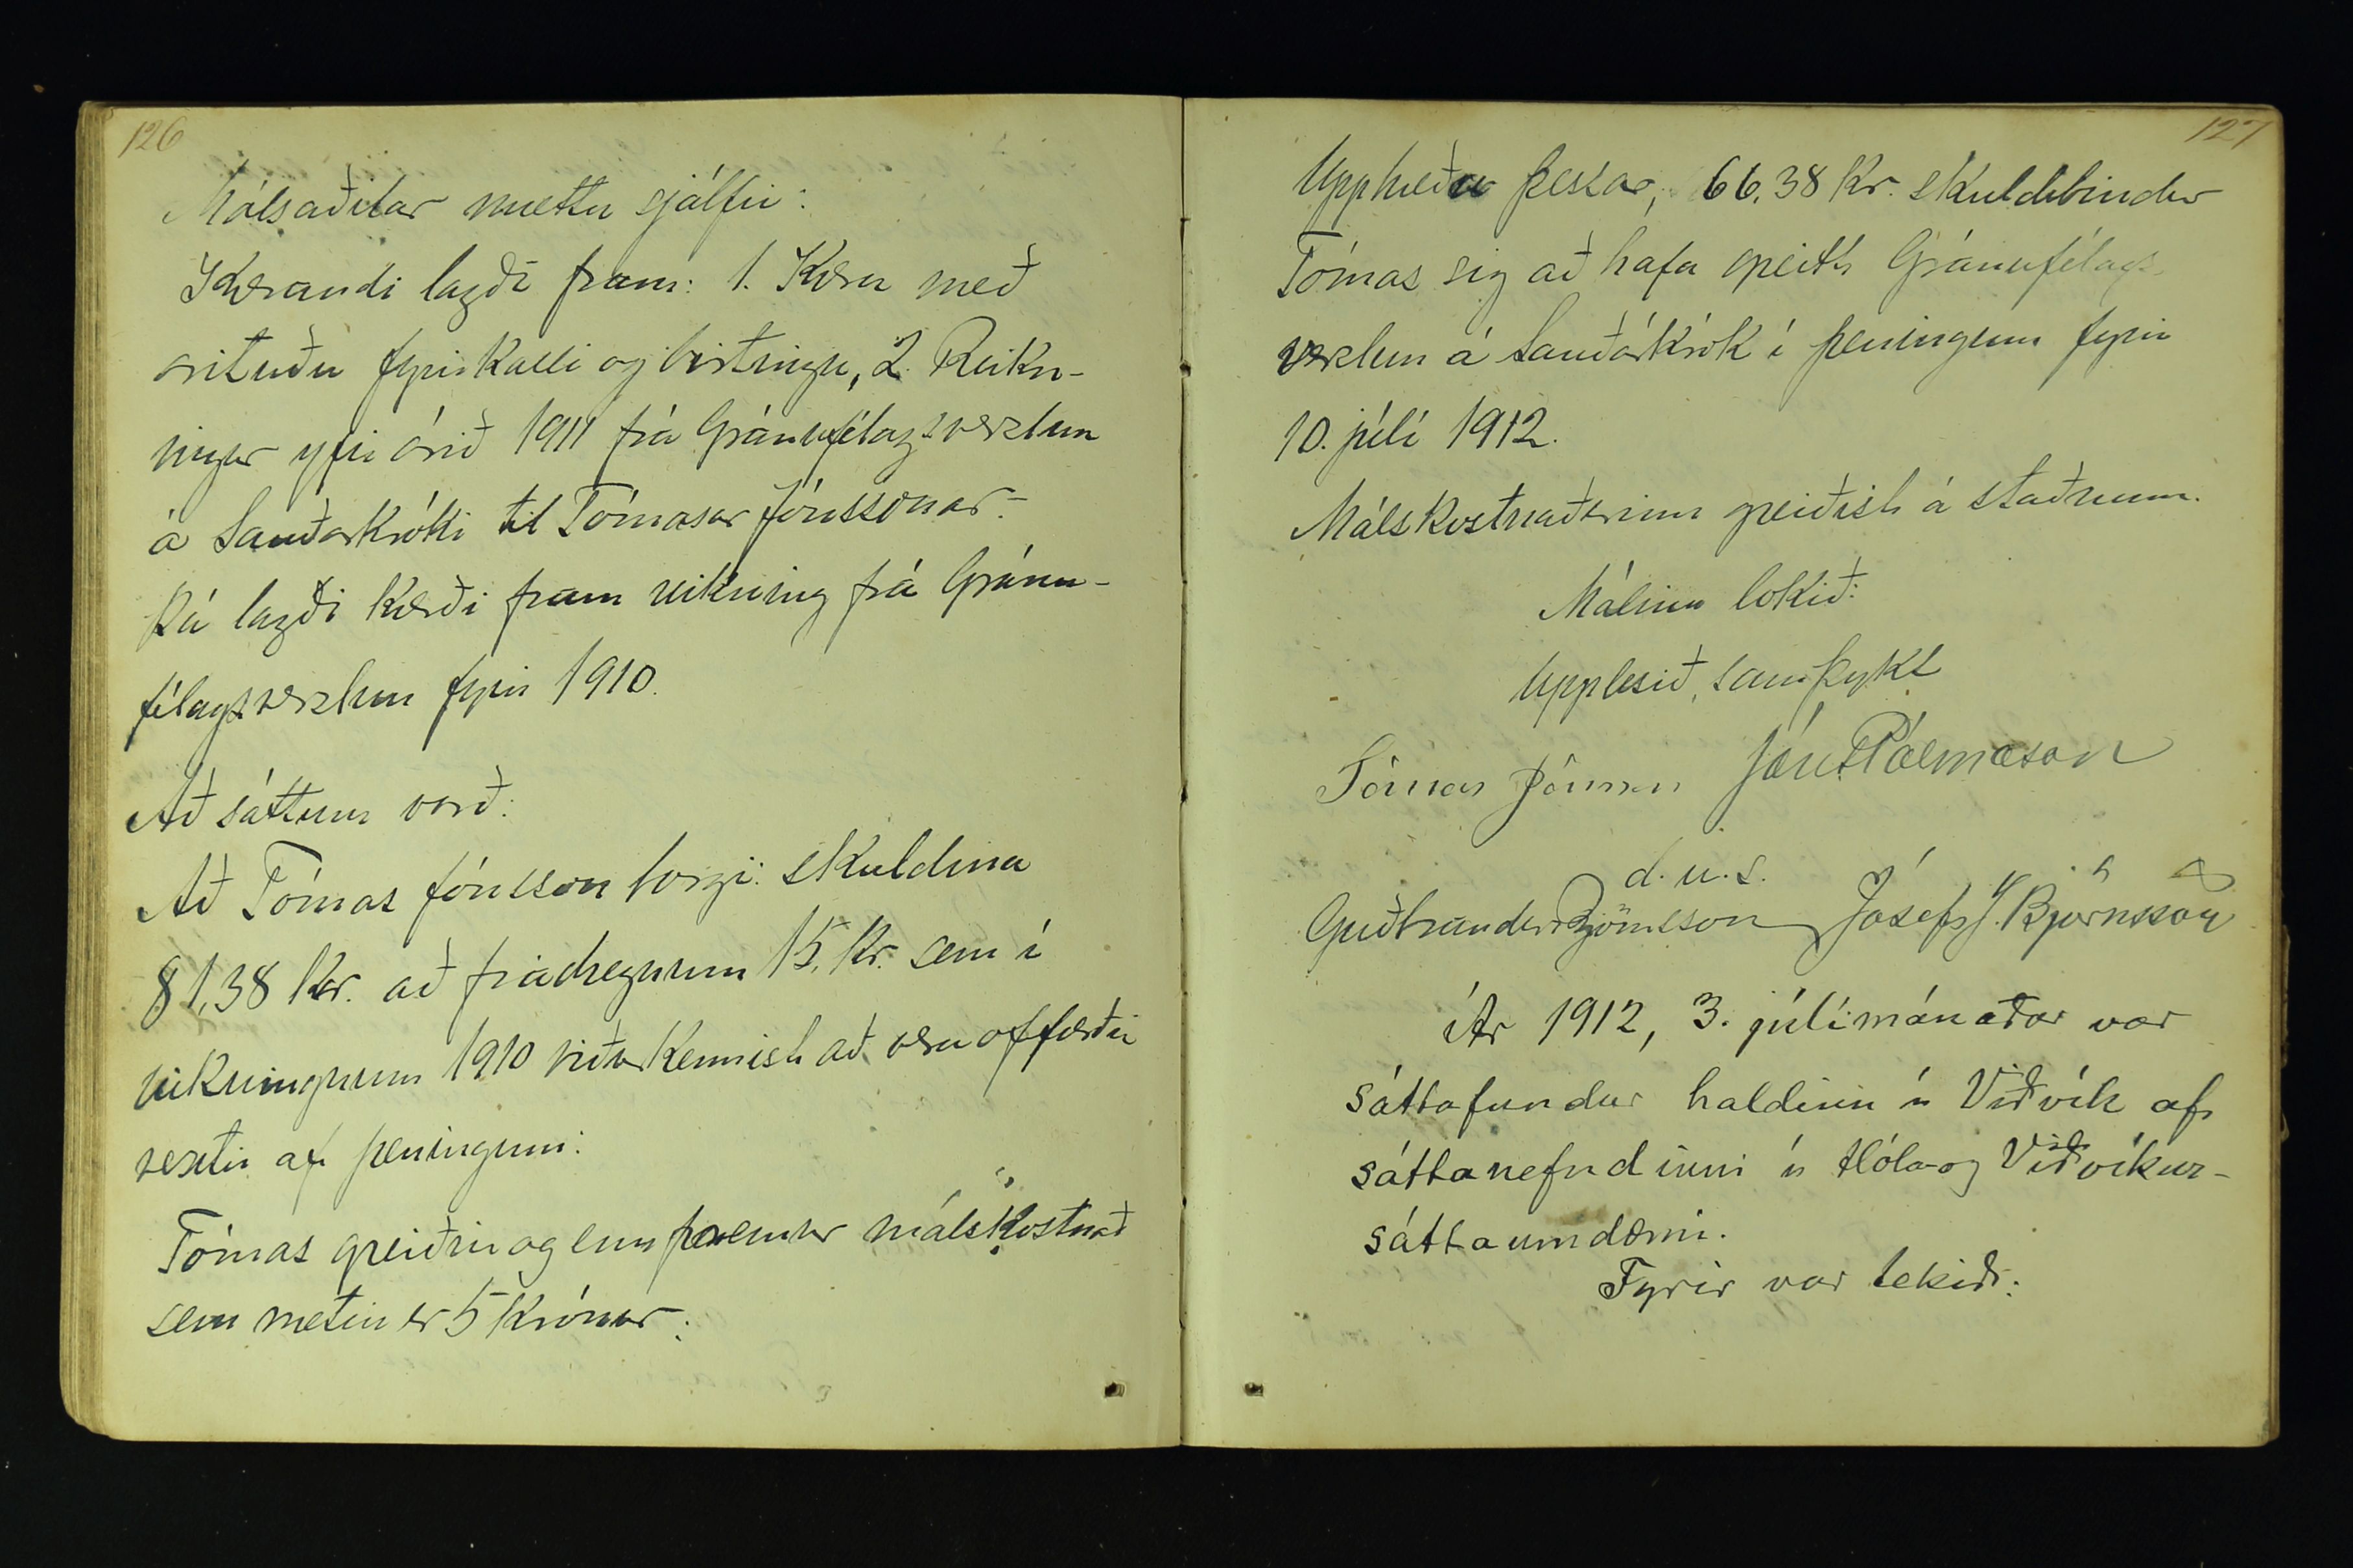 126
Málsaðilar mættu sjálfir:
Kærandi lagði fram: 1. Kæru með
árituðu fyrirkalli og birtingu, 2. Reikn-
ingur yfir árið 1911 frá Gránufélagsverzlun
á Sauðárkróki til Tómasar Jónssonar.
Þá lagði kærði fram reikning frá Gránu-
félagsverzlun fyrir 1910.
Að sáttum varð:
Að Tómas Jónsson borgi skuldina
81,38 kr. að frádregnum 15. kr. sem í
reikningnum 1910 viðurkennist að vera offærðir
vextir af peningum:
Tómas greiðir og enn fremur málskostnað
sem metin er 5 krónur:
127
Upphæðu þessar, 66,38 kr. skuldbindur
Tómas sig að hafa greitt Gránufélags-
verzlun á Sauðárkrók í peningum fyrir
10. júlí 1912.
Málskostnaðurinn greiðist á staðnum.
Málinu lokið:
Upplesið, samþykt
Tómas Jónsson Jón Pálmason
d. u. s.
Guðbrandur Björnsson Jósef J. Björnsson
Ár 1912, 3. júlímánaðar var
sáttafundur haldinn í Viðvík af
sáttanefndinni í Hóla- og Viðvíkur-
sáttaumdæmi.
Fyrir var tekið: